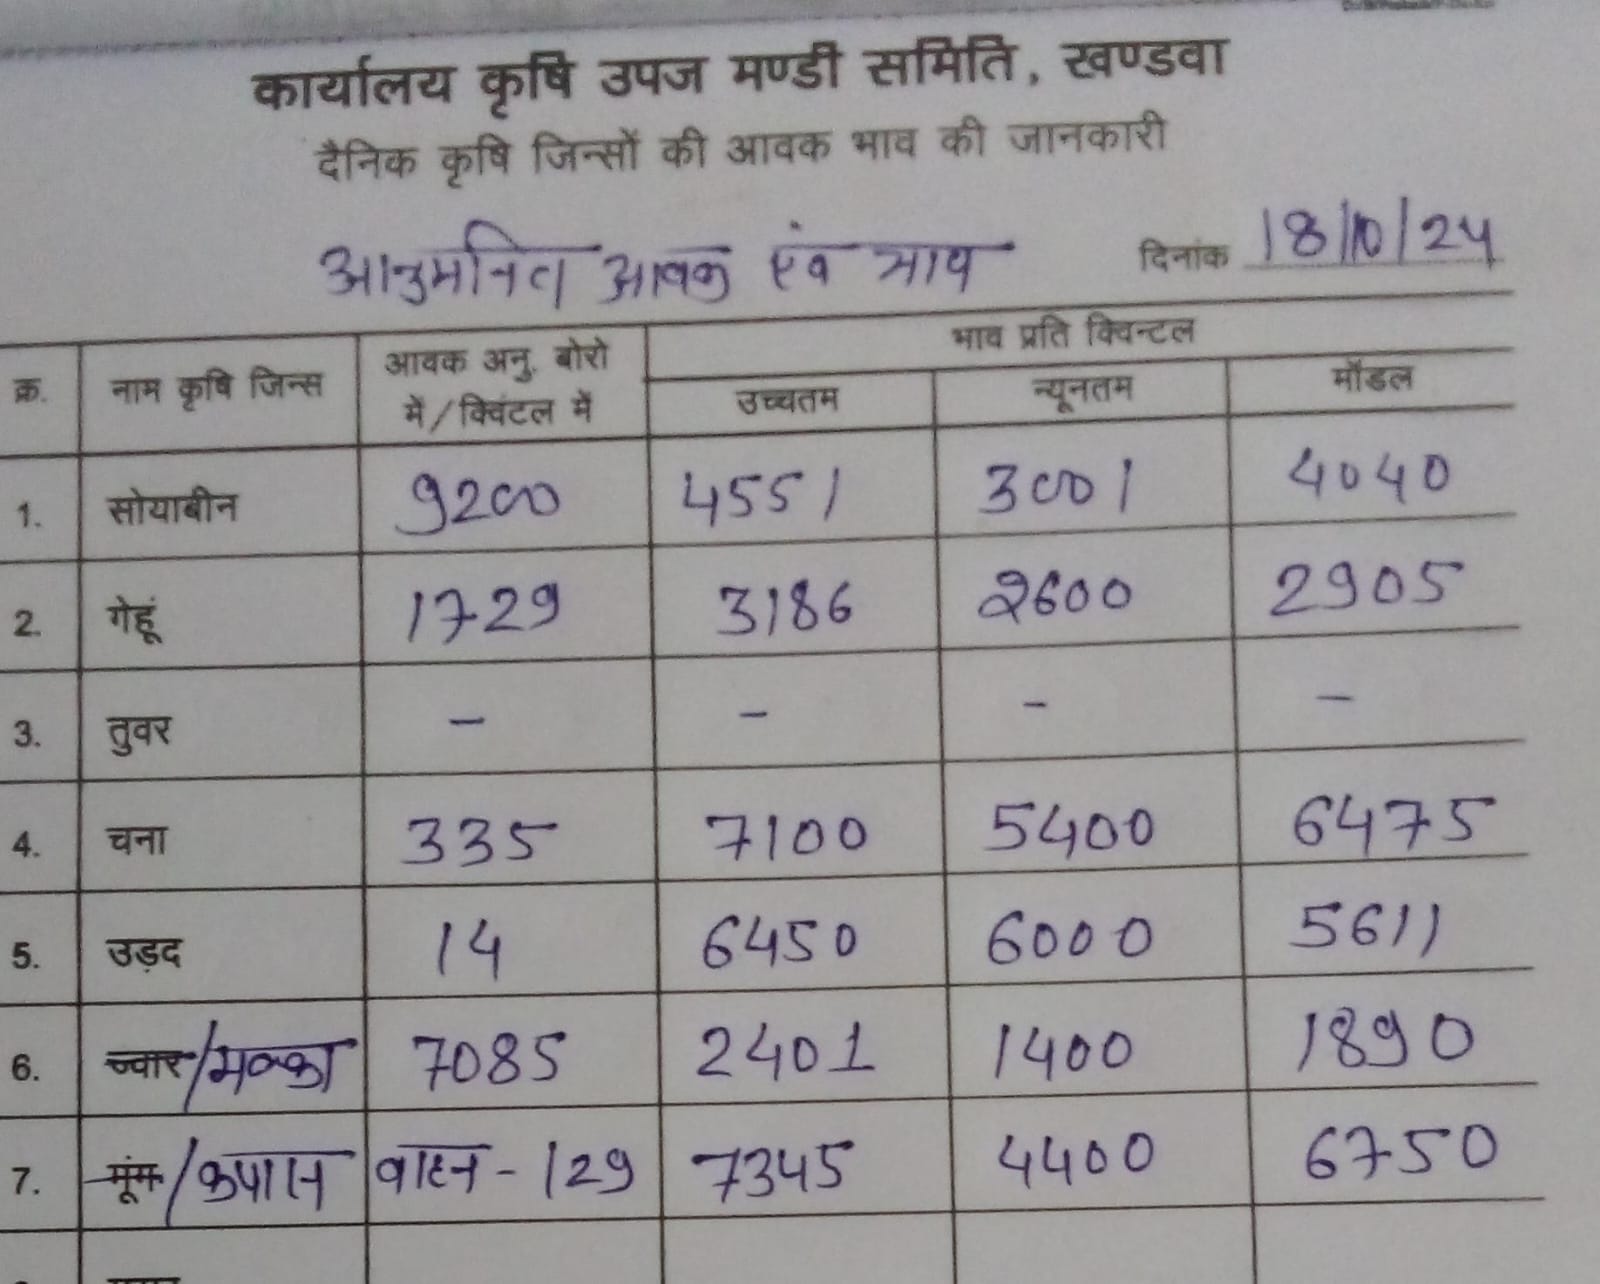 कार्यालय कृषि उपज मण्डी समिति, खण्डवा
दैनिक कृषि जिन्सों की आवक भाव की जानकारी
आनुमनित आवक एंव भाव दिनांक 18/10/24
क्र. नाम कृषि जिन्स आवक अनु. बोरो में/क्विंटल में भाव प्रति क्विन्टल
उच्चतम न्यूनतम मॉडल
1. सोयाबीन 9200 4551 3001 4040
2. गेहूं 1729 3186 2600 2905
3. तुवर - - - -
4. चना 335 7100 5400 6475
5. उड़द 14 6450 6000 5611
6. ज्वार/मक्का 7085 2401 1400 1890
7. मूंग/कपास वाहन - 129 7345 4400 6750